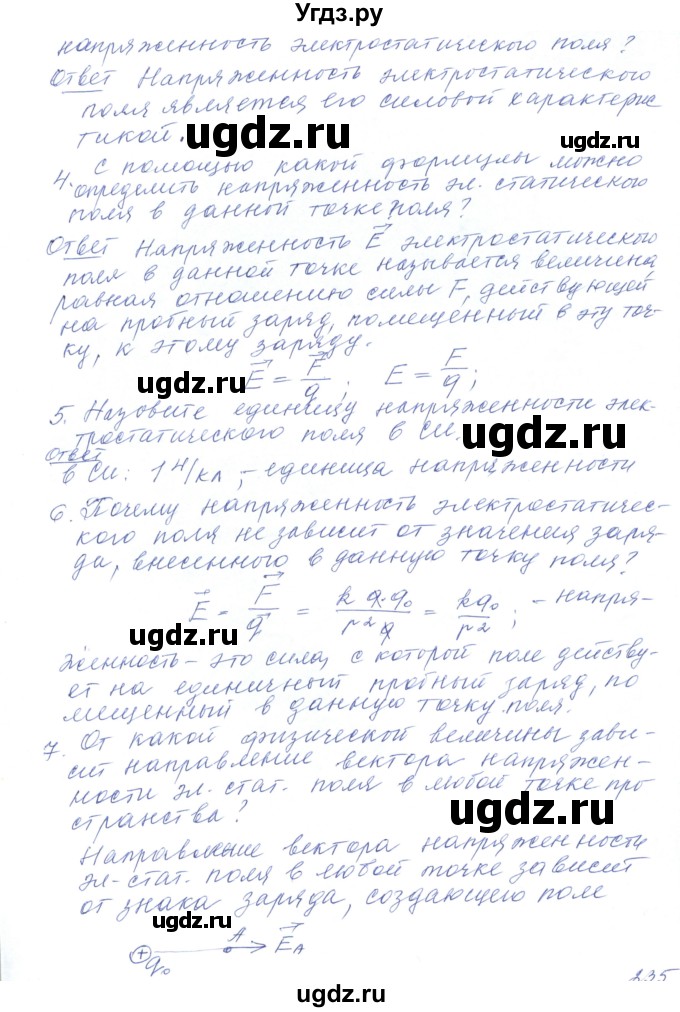 Угдз.ру
напряженность электростатического поля?
Ответ Напряженность электростатического
поля является его силовой характерис
тикой.
ugdz.ru ugdz.ru
4. С помощью какой формулы можно
определить напряженность эл. статического
поля в данной точке поля?
ugdz.ru
Ответ Напряженность E электростатического
поля в данной точке называется величина,
равная отношению силы F, действующей
на пробный заряд, помещенный в эту точ-
ку, к этому заряду.
E = F/q ; E = F/q ;
ugdz.ru
5. Назовите единицу напряженности элек-
тростатического поля в Си.
ugdz.ru
Ответ
в Си: 1 Н/кл, - единица напряженности
6. Почему напряженность электростатичес-
кого поля не зависит от значения заря-
да, внесенного в данную точку поля?
E = F/q = k q·q₀/r² q = kq₀/r² ; - напря-
ugdz.ru
женность – это сила, с которой поле действу-
ет на единичный пробный заряд, по
мещенный в данную точку поля.
ugdz.ru
7. От какой физической величины зави-
сит направление вектора напряжен-
ности эл. стат. поля в любой точке про
странства?
ugdz.ru
Направление вектора напряженности
эл-стат. поля в любой точке зависит
от знака заряда, создающего поле
ugdz.ru
+ A E_A
q₀
235
ugdz.ru